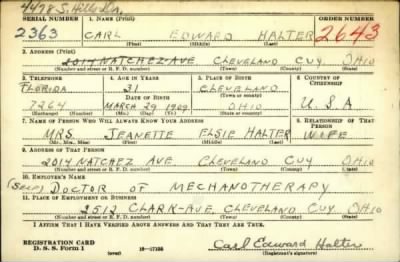 4478 S. Hills Dr.
SERIAL NUMBER 1. NAME (Print) ORDER NUMBER
2363 CARL EDWARD HALTER 2643
(First) (Middle) (Last)
2. ADDRESS (Print)
2014 NATCHEZ AVE CLEVELAND CUY OHIO
(Number and street or R. F. D. number) (Town) (County) (State)
3. TELEPHONE 4. AGE IN YEARS 5. PLACE OF BIRTH 6. COUNTRY OF CITIZENSHIP
FLORIDA 31 CLEVELAND
DATE OF BIRTH (Town or county)
7264 MARCH 29 1909 OHIO U.S.A
(Exchange) (Number) (Mo.) (Day) (Yr.) (State or country)
7. NAME OF PERSON WHO WILL ALWAYS KNOW YOUR ADDRESS 8. RELATIONSHIP OF THAT PERSON
MRS. JEANETTE ELSIE HALTER WIFE
(Mr., Mrs., Miss) (First) (Middle) (Last)
9. ADDRESS OF THAT PERSON
2014 NATCHEZ AVE CLEVELAND CUY OHIO
(Number and street or R. F. D. number) (Town) (County) (State)
10. EMPLOYER'S NAME
(SELF) DOCTOR OF MECHANOTHERAPY
11. PLACE OF EMPLOYMENT OR BUSINESS
2512 CLARK-AVE CLEVELAND CUY OHIO
(Number and street or R. F. D. number) (Town) (County) (State)
I AFFIRM THAT I HAVE VERIFIED ABOVE ANSWERS AND THAT THEY ARE TRUE.
REGISTRATION CARD
D. S. S. Form 1 16-17105 Carl Edward Halter
(Registrant's signature)